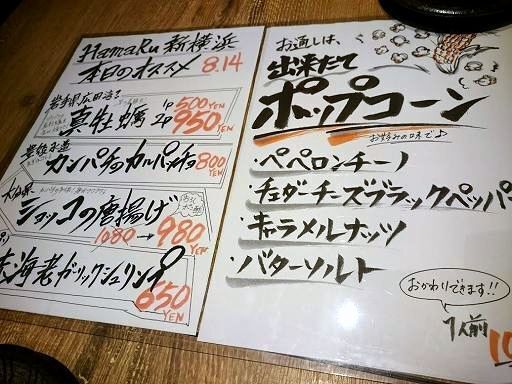 HamaRu 新横浜
本日のオススメ 8.14
岩手県広田湾
真牡蠣 1p 500YEN
2p 950YEN
カンパチのカルパッチョ 800YEN
大分県
ショッコの唐揚げ
1080→980YEN
海老ガーリックシュリンプ
650YEN
お通しは、
出来たて
ポップコーン
お好みの味で♪
・ペペロンチーノ
・チェダーチーズブラックペッパ
・キャラメルナッツ
・バターソルト
おかわりできます!!
1人前